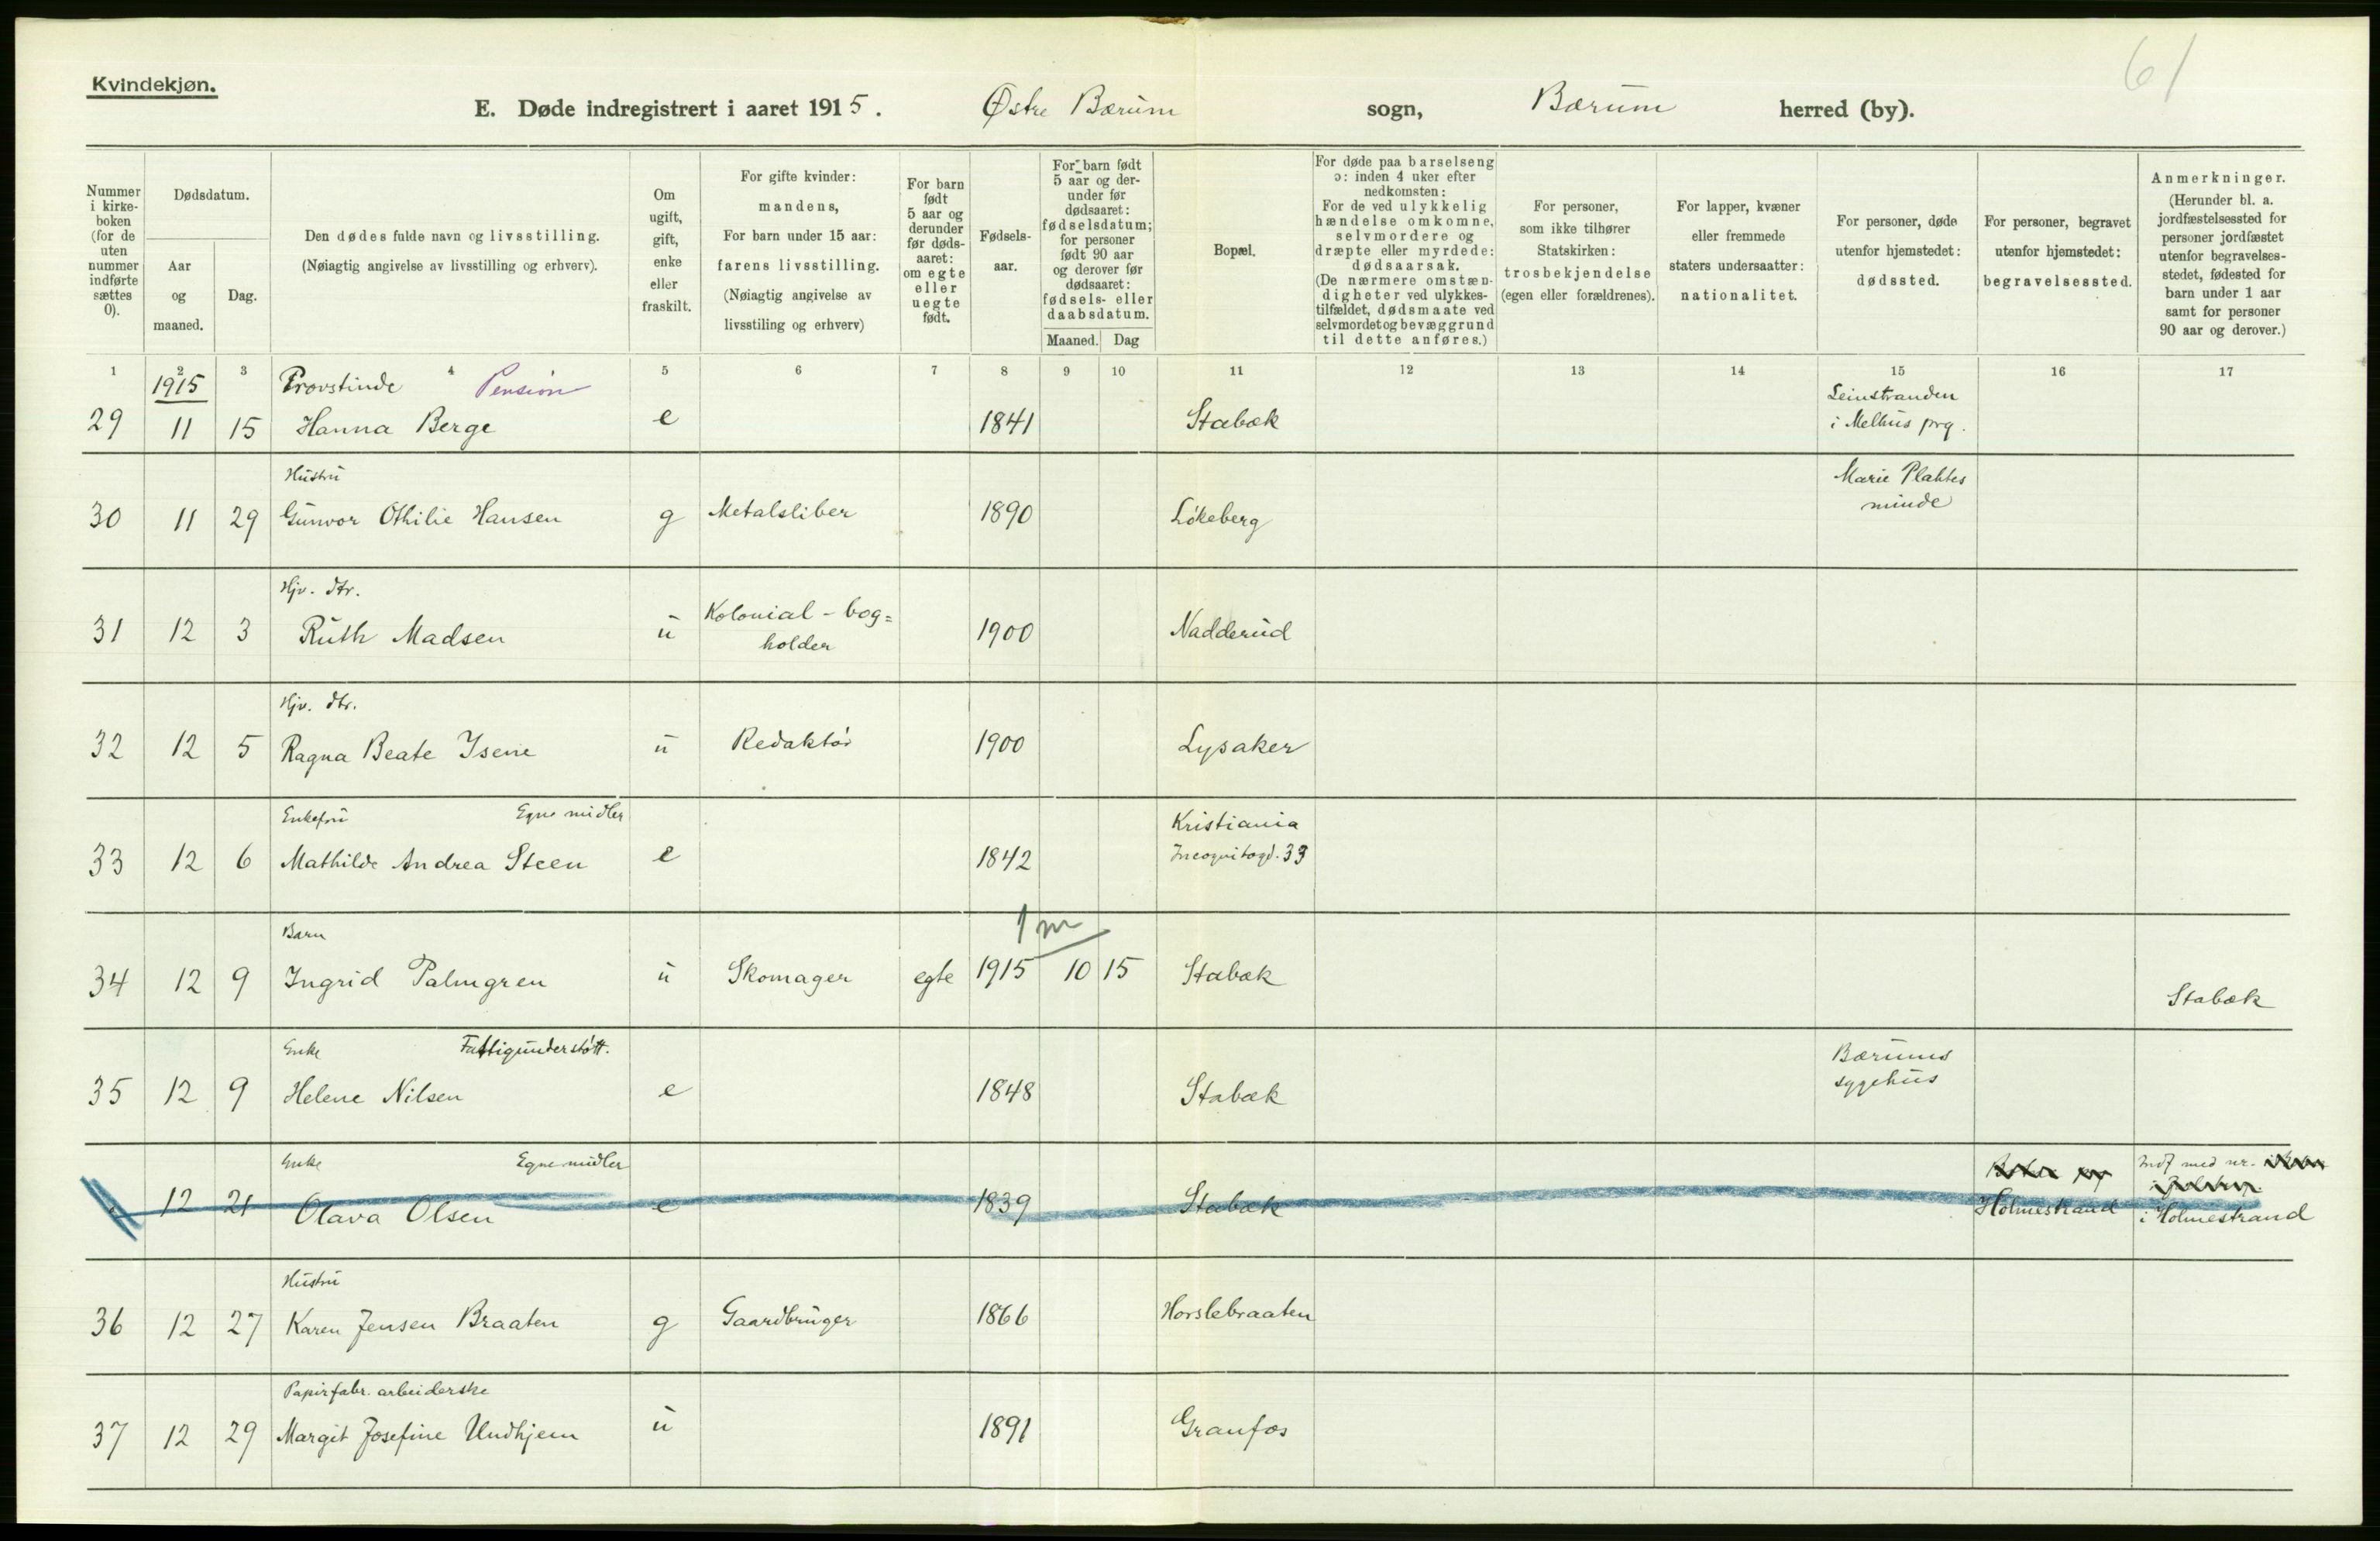 61
Kvindekjøn.
E. Døde indregistrert i aaret 1915. Østre Bærum sogn, Bærum herred (by).
Nummer i kirke-boken (for de uten nummer indførte sættes 0).
Dødsdatum.
Aar og maaned.
Dag.
Den dødes fulde navn og livsstilling.
(Nøiagtig angivelse av livsstilling og erhverv).
Om ugift, gift, enke eller fraskilt.
For gifte kvinder:
mandens,
For barn under 15 aar:
farens livsstilling.
(Nøiagtig angivelse av
livsstiling og erhverv)
For barn født 5 aar og derunder før døds-aaret: om egte eller uegte født.
Fødsels-aar.
For barn født 5 aar og der-under før dødsaaret: fødselsdatum; for personer født 90 aar og derover før dødsaaret: fødsels- eller daabsdatum.
Maaned. Dag
Bopæl.
For døde paa barselseng
ɔ: inden 4 uker efter
nedkomsten:
For de ved ulykkelig
hændelse omkomne,
selvmordere og
dræpte eller myrdede:
dødsaarsak.
(De nærmere omstæn-
digheter ved ulykkes-
tilfældet, dødsmaate ved
selvmordet og bevæggrund
til dette anføres.)
For personer,
som ikke tilhører
Statskirken:
trosbekjendelse
(egen eller forældrenes).
For lapper, kvæner
eller fremmede
staters undersaatter:
nationalitet.
For personer, døde
utenfor hjemstedet:
dødssted.
For personer, begravet
utenfor hjemstedet:
begravelsessted.
Anmerkninger.
(Herunder bl. a.
jordfæstelsessted for
personer jordfæstet
utenfor begravelses-
stedet, fødested for
barn under 1 aar
samt for personer
90 aar og derover.)
1 2 3 4 5 6 7 8 9 10 11 12 13 14 15 16 17
1915 Provstinde Pension Leinstranden
29 11 15 Hanna Berge e 1841 Stabæk i Melhus prg.
Hustru Marie Plahtes
30 11 29 Gunvor Othilie Hansen g Metalsliber 1890 Løkeberg minde
Hjv. dtr. Kolonial-bog=
31 12 3 Ruth Madsen u holder 1900 Nadderud
Hjv. dtr.
32 12 5 Ragna Beate Isene u Redaktør 1900 Lysaker
Enkefru Egne midler Kristiania
33 12 6 Mathilde Andrea Steen e 1842 Incognitogd. 33
Barn 1 m
34 12 9 Ingrid Palmgren u Skomager egte 1915 10 15 Stabæk Stabæk
Enke Fattigunderstøtt. Bærums
35 12 9 Helene Nilsen e 1848 Stabæk sygehus
Enke Egne midler Indf med nr.
12 21 Olava Olsen e 1839 Stabæk Holmestrand i Holmestrand
Hustru
36 12 27 Karen Jensen Braaten g Gaardbruger 1866 Horslebraaten
Papirfabr. arbeiderske
37 12 29 Margit Josefine Undhjem u 1891 Granfos